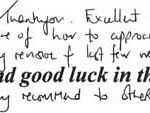 Thankyou. Excellent
of how to approac
remove + last few
d good luck in th
recommend to other